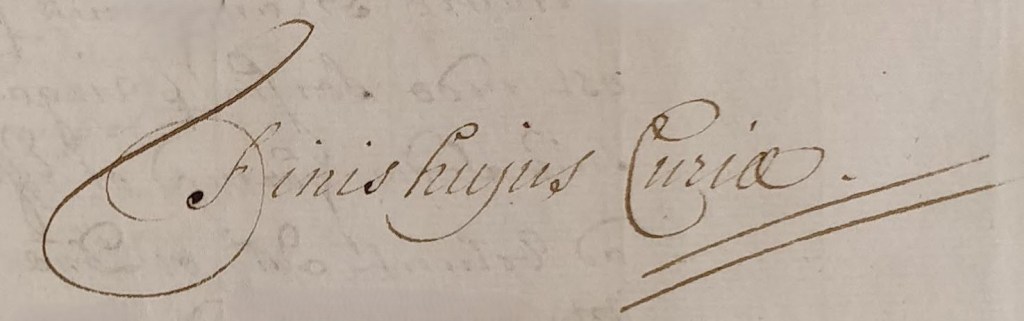 Finis hujus Curiæ.